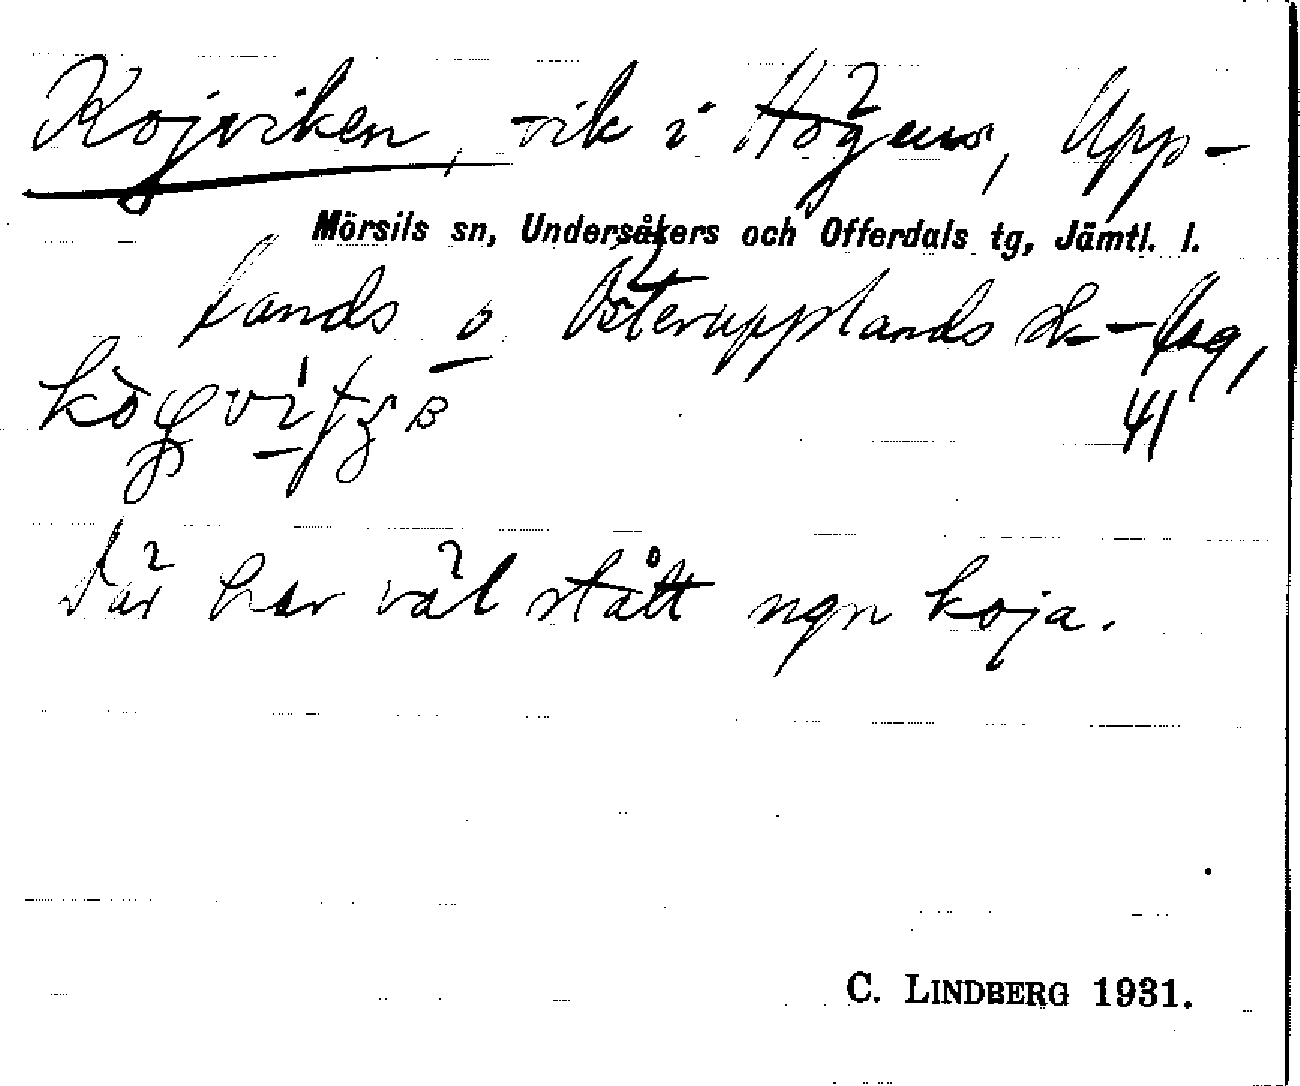 Kojviken, vik i Högens, Upp-
Mörsils sn, Undersåkers och Offerdals tg, Jämtl. l.
lands o Österupplands
41
Där har väl stått ngn koja.
C. LINDBERG 1931.